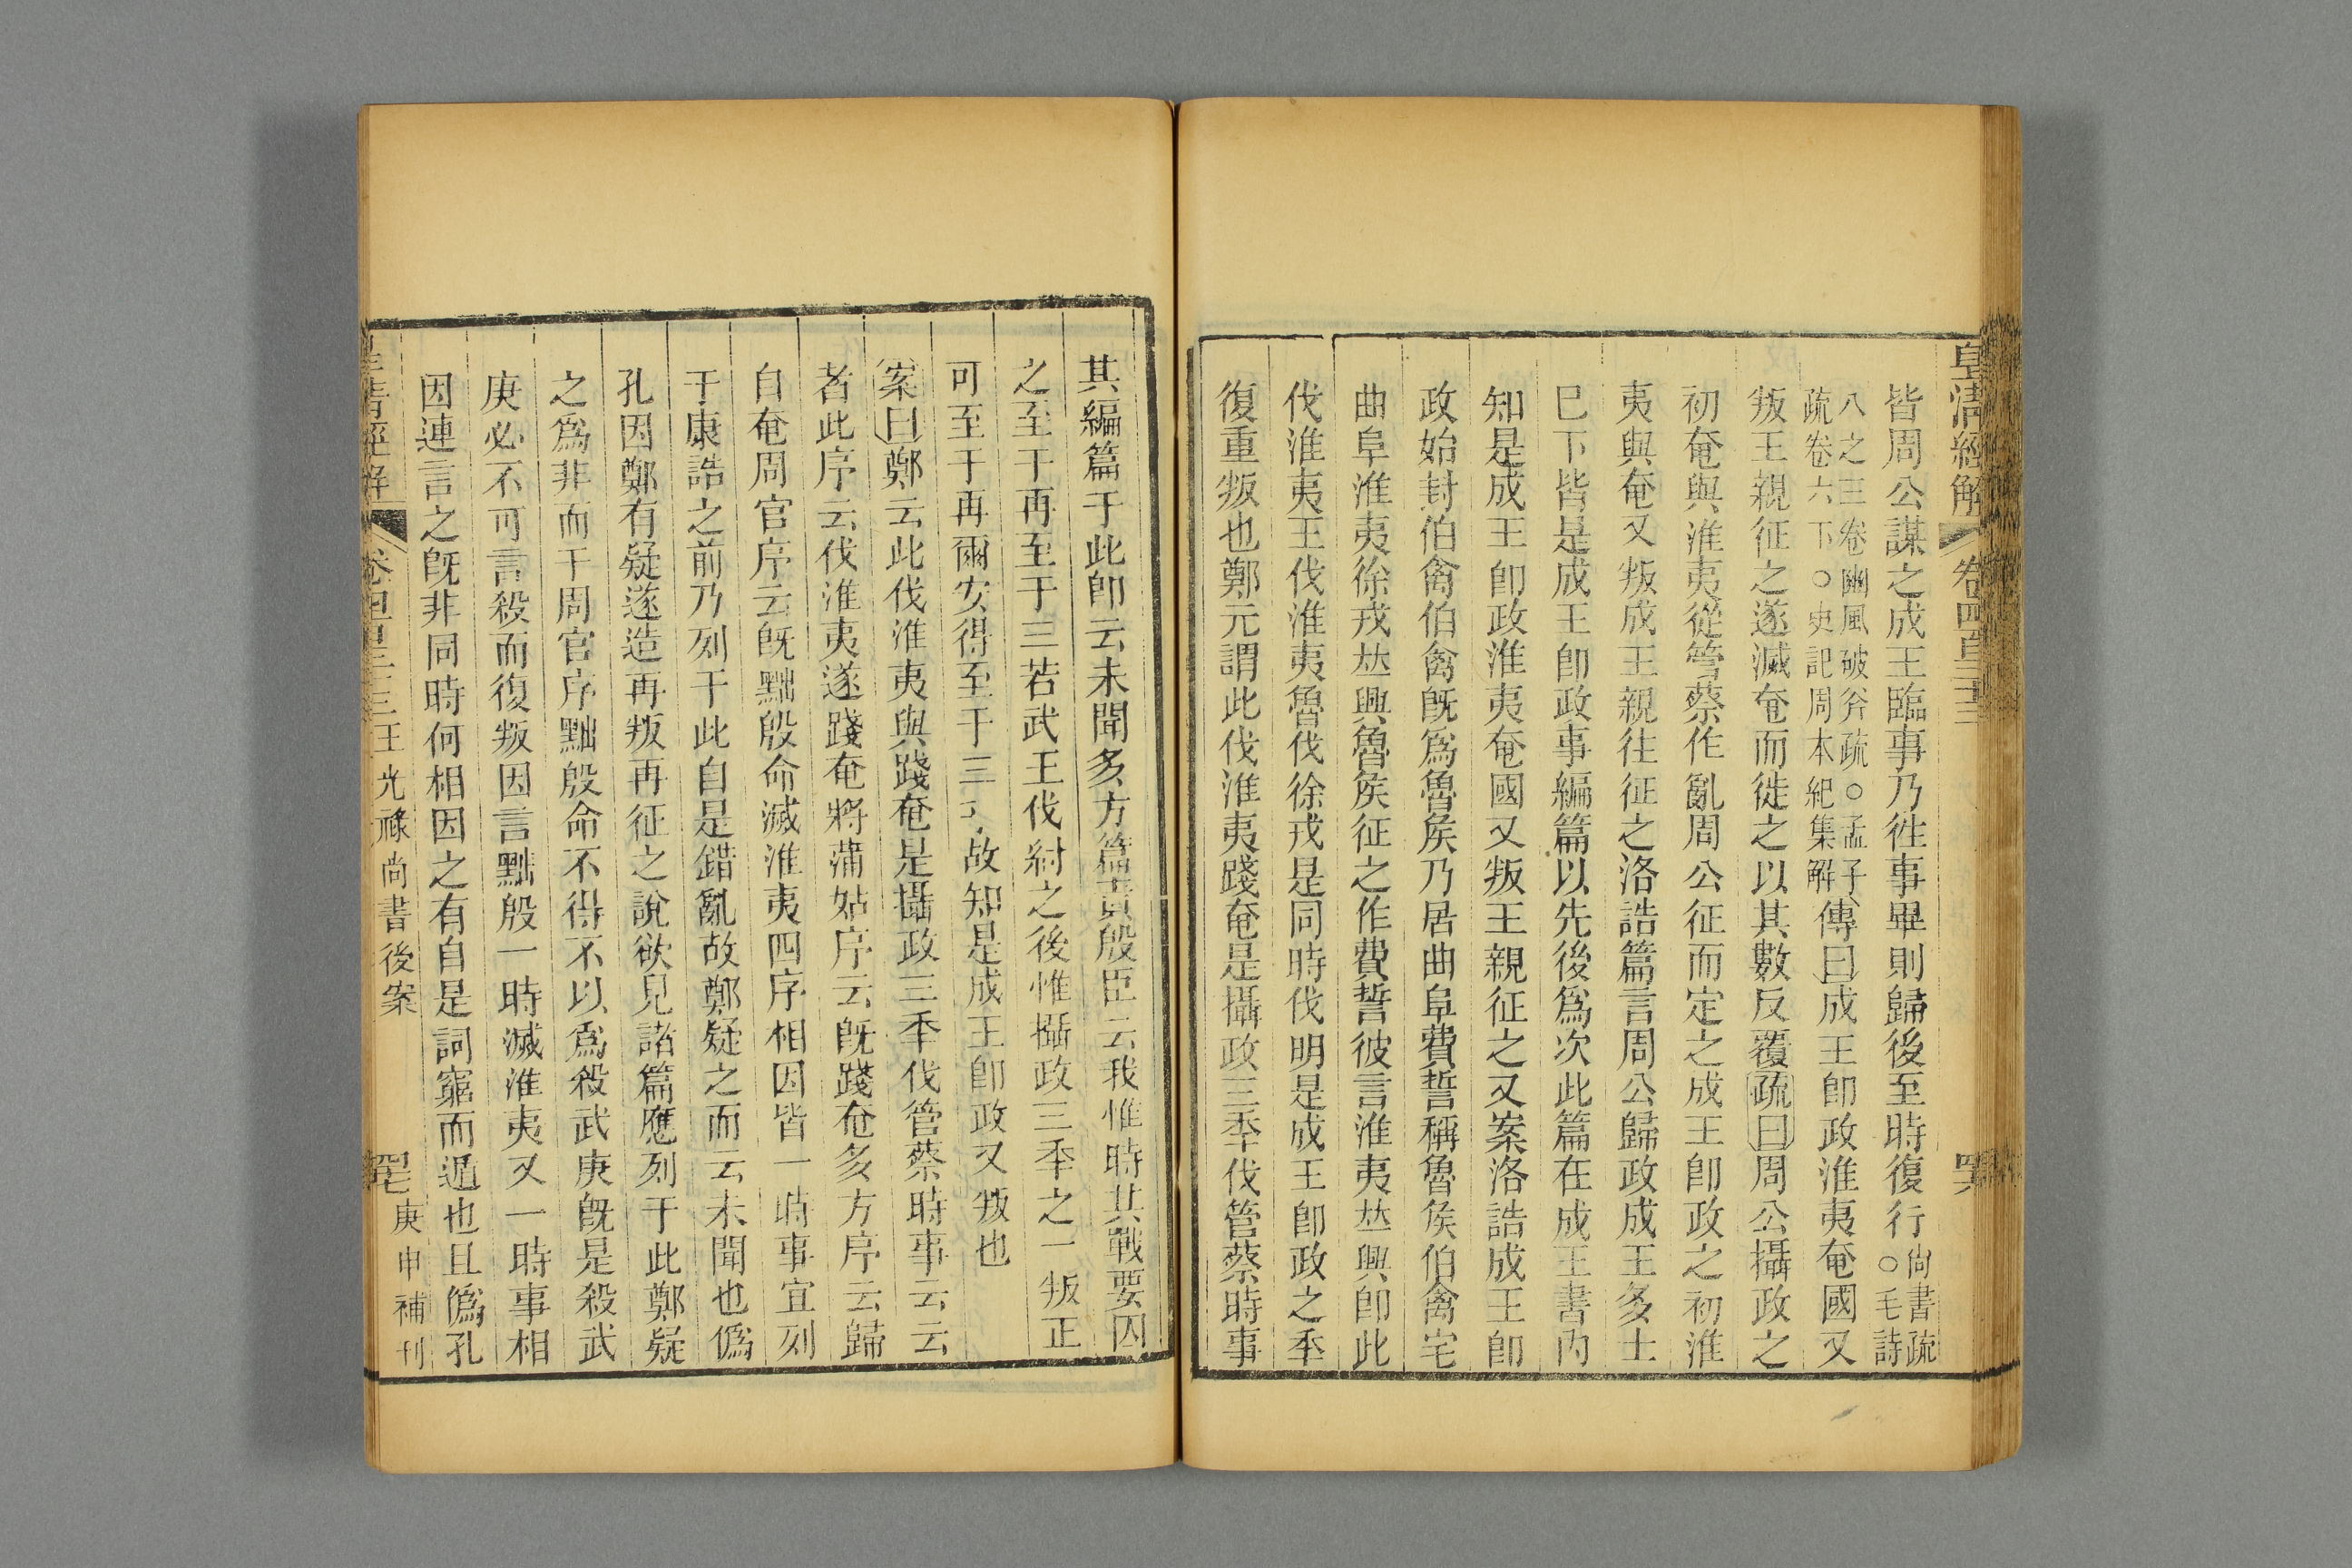 皇清經解 卷四百三十三 四六
皆周公謀之成王臨事乃往事畢則歸後至時復行尚書疏○毛詩
八之三卷豳風破斧疏○孟子
疏卷六下○史記周本紀集解傳曰成王卽政淮夷奄國又
叛王親征之遂滅奄而徙之以其數反覆疏曰周公攝政之
初奄與淮夷從管蔡作亂周公征而定之成王卽政之初淮
夷與奄又叛成王親往征之洛誥篇言周公歸政成王多士
巳下皆是成王卽政事編篇以先後爲次此篇在成王書內
知是成王卽政淮夷奄國又叛王親征之又案洛誥成王卽
政始封伯禽伯禽旣爲魯矦乃居曲阜費誓稱魯矦伯禽宅
曲阜淮夷徐戎竝興魯矦征之作費誓彼言淮夷竝興卽此
伐淮夷王伐淮夷魯伐徐戎是同時伐明是成王卽政之秊
復重叛也鄭元謂此伐淮夷踐奄是攝政三秊伐管蔡時事
其編篇于此卽云未聞多方篇責殷臣云我惟時其戰要囚
之至于再至于三若武王伐紂之後惟攝政三秊之一叛正
可至于再爾安得至于三 故知是成王卽政又叛也
案曰鄭云此伐淮夷與踐奄是攝政三秊伐管蔡時事云云
者此序云伐淮夷遂踐奄將蒲姑序云旣踐奄多方序云歸
自奄周官序云旣黜殷命滅淮夷四序相因皆一時事宜列
于康誥之前乃列于此自是錯亂故鄭疑之而云未聞也僞
孔因鄭有疑遂造再叛再征之說欲見諸篇應列于此鄭疑
之爲非而于周官序黜殷命不得不以爲殺武庚旣是殺武
庚必不可言殺而復叛因言黜殷一時滅淮夷又一時事相
因連言之旣非同時何相因之有自是詞窮而遁也且僞孔
皇清經解 卷四百三十三 王光祿尚書後案 四七 庚申補刊